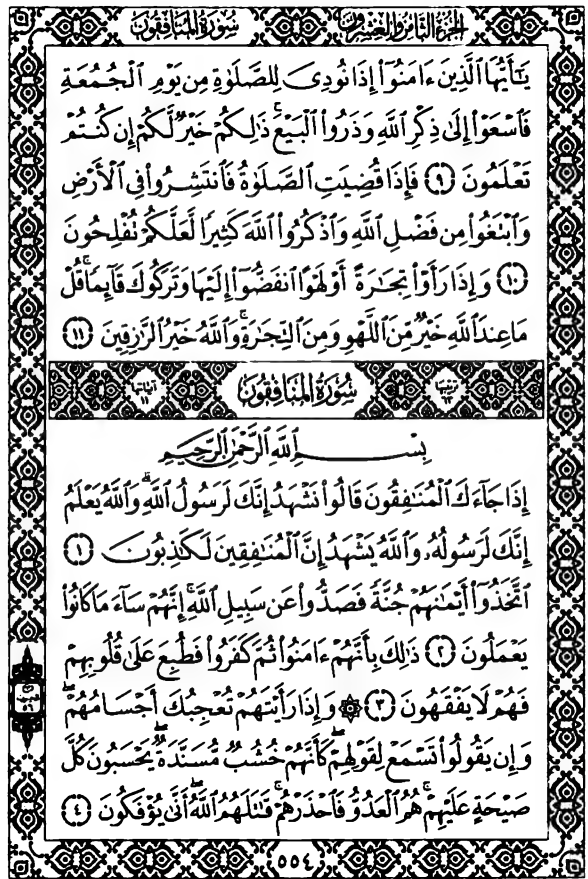 الجزء الثامن والعشرون سورة المنافقون
يَٰٓأَيُّهَا ٱلَّذِينَ ءَامَنُوٓا۟ إِذَا نُودِىَ لِلصَّلَوٰةِ مِن يَوْمِ ٱلْجُمُعَةِ
فَٱسْعَوْا۟ إِلَىٰ ذِكْرِ ٱللَّهِ وَذَرُوا۟ ٱلْبَيْعَ ۚ ذَٰلِكُمْ خَيْرٌ لَّكُمْ إِن كُنتُمْ
تَعْلَمُونَ ٩ فَإِذَا قُضِيَتِ ٱلصَّلَوٰةُ فَٱنتَشِرُوا۟ فِى ٱلْأَرْضِ
وَٱبْتَغُوا۟ مِن فَضْلِ ٱللَّهِ وَٱذْكُرُوا۟ ٱللَّهَ كَثِيرًا لَّعَلَّكُمْ تُفْلِحُونَ
١٠ وَإِذَا رَأَوْا۟ تِجَٰرَةً أَوْ لَهْوًا ٱنفَضُّوٓا۟ إِلَيْهَا وَتَرَكُوكَ قَآئِمًا ۚ قُلْ
مَا عِندَ ٱللَّهِ خَيْرٌ مِّنَ ٱللَّهْوِ وَمِنَ ٱلتِّجَٰرَةِ ۚ وَٱللَّهُ خَيْرُ ٱلرَّٰزِقِينَ ١١
ترتيبها ٦٣ سورة المنافقون آياتها ١١
بِسْمِ ٱللَّهِ ٱلرَّحْمَٰنِ ٱلرَّحِيمِ
إِذَا جَآءَكَ ٱلْمُنَٰفِقُونَ قَالُوا۟ نَشْهَدُ إِنَّكَ لَرَسُولُ ٱللَّهِ ۗ وَٱللَّهُ يَعْلَمُ
إِنَّكَ لَرَسُولُهُۥ وَٱللَّهُ يَشْهَدُ إِنَّ ٱلْمُنَٰفِقِينَ لَكَٰذِبُونَ ١
ٱتَّخَذُوٓا۟ أَيْمَٰنَهُمْ جُنَّةً فَصَدُّوا۟ عَن سَبِيلِ ٱللَّهِ ۚ إِنَّهُمْ سَآءَ مَا كَانُوا۟
يَعْمَلُونَ ٢ ذَٰلِكَ بِأَنَّهُمْ ءَامَنُوا۟ ثُمَّ كَفَرُوا۟ فَطُبِعَ عَلَىٰ قُلُوبِهِمْ
فَهُمْ لَا يَفْقَهُونَ ٣ ۞ وَإِذَا رَأَيْتَهُمْ تُعْجِبُكَ أَجْسَامُهُمْ ۖ
وَإِن يَقُولُوا۟ تَسْمَعْ لِقَوْلِهِمْ ۖ كَأَنَّهُمْ خُشُبٌ مُّسَنَّدَةٌ ۖ يَحْسَبُونَ كُلَّ
صَيْحَةٍ عَلَيْهِمْ ۚ هُمُ ٱلْعَدُوُّ فَٱحْذَرْهُمْ ۚ قَٰتَلَهُمُ ٱللَّهُ ۖ أَنَّىٰ يُؤْفَكُونَ ٤
٥٥٤